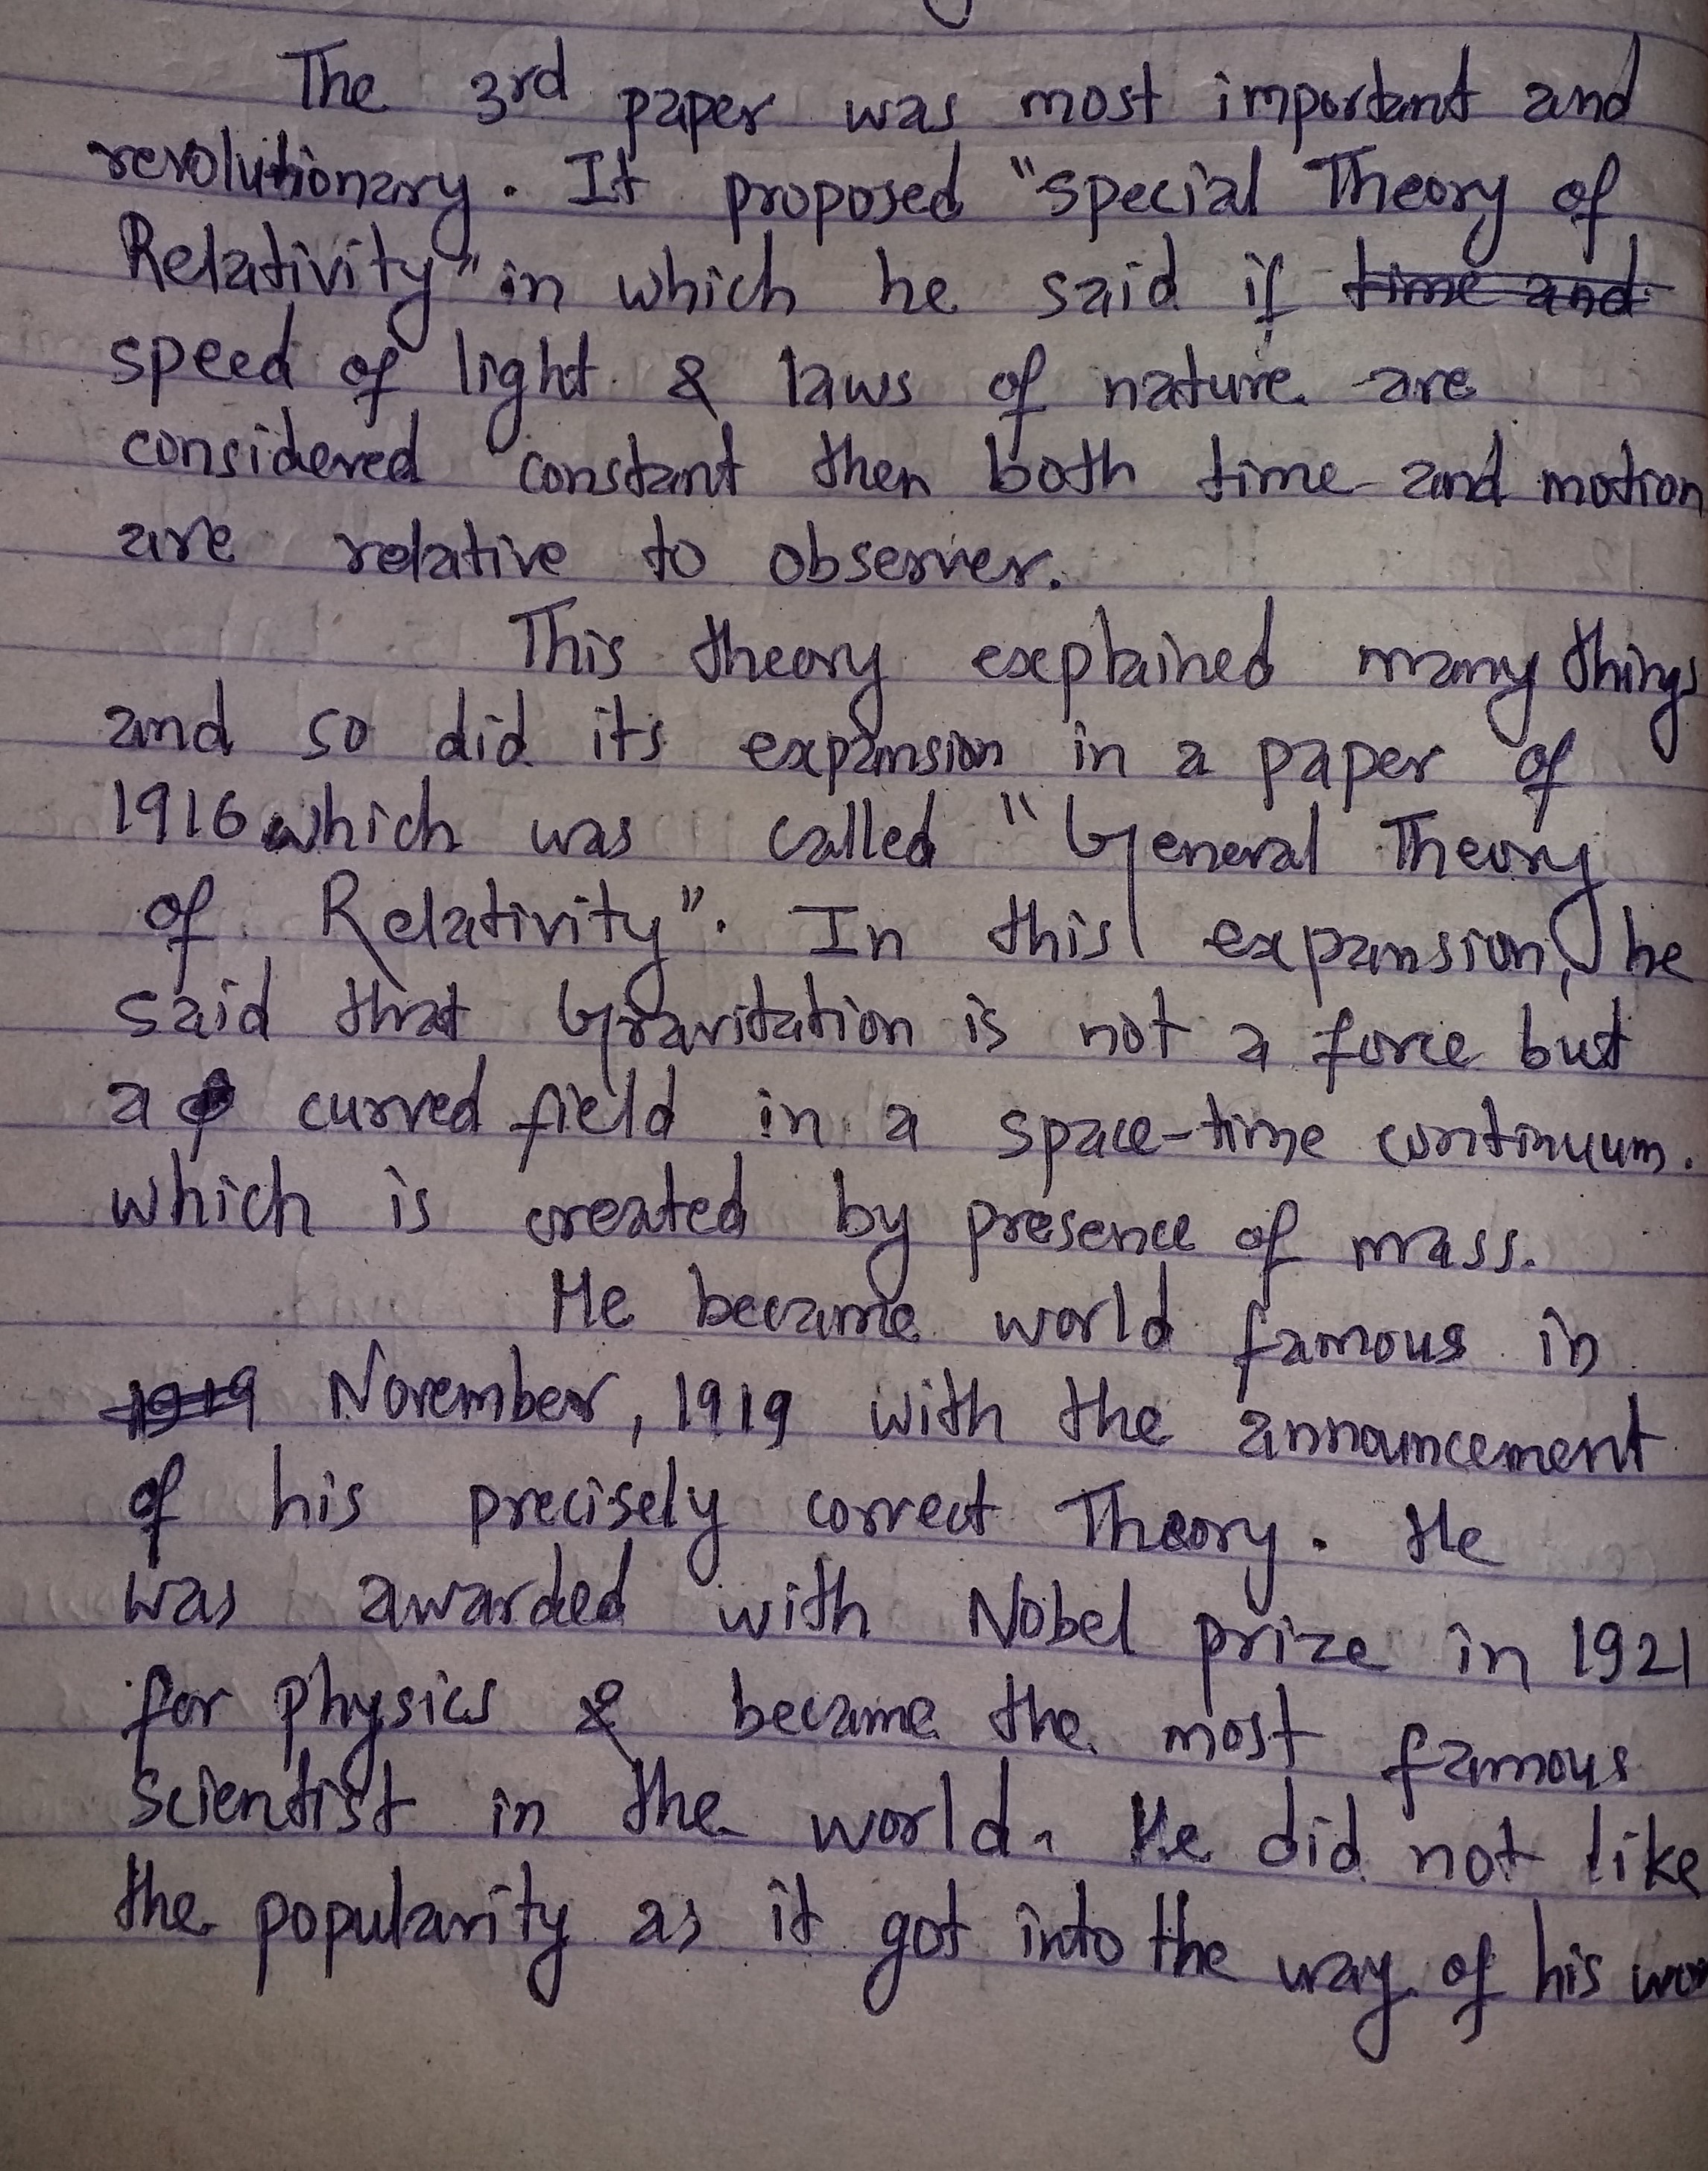 The 3rd paper was most important and
revolutionary. It proposed "special Theory of
Relativity" in which he said if time and
speed of light & laws of nature are
considered constant then both time and motion
are relative to observer.
This theory explained many things
and so did its expansion in a paper of
1916 which was called "General Theory
of Relativity". In this expansion, he
said that Gravitation is not a force but
a curved field in a space-time continuum.
which is created by presence of mass.
He became world famous in
1919 November, 1919 with the announcement
of his precisely correct Theory. He
was awarded with Nobel prize in 1921
for physics & became the most famous
scientist in the world. He did not like
the popularity as it got into the way of his